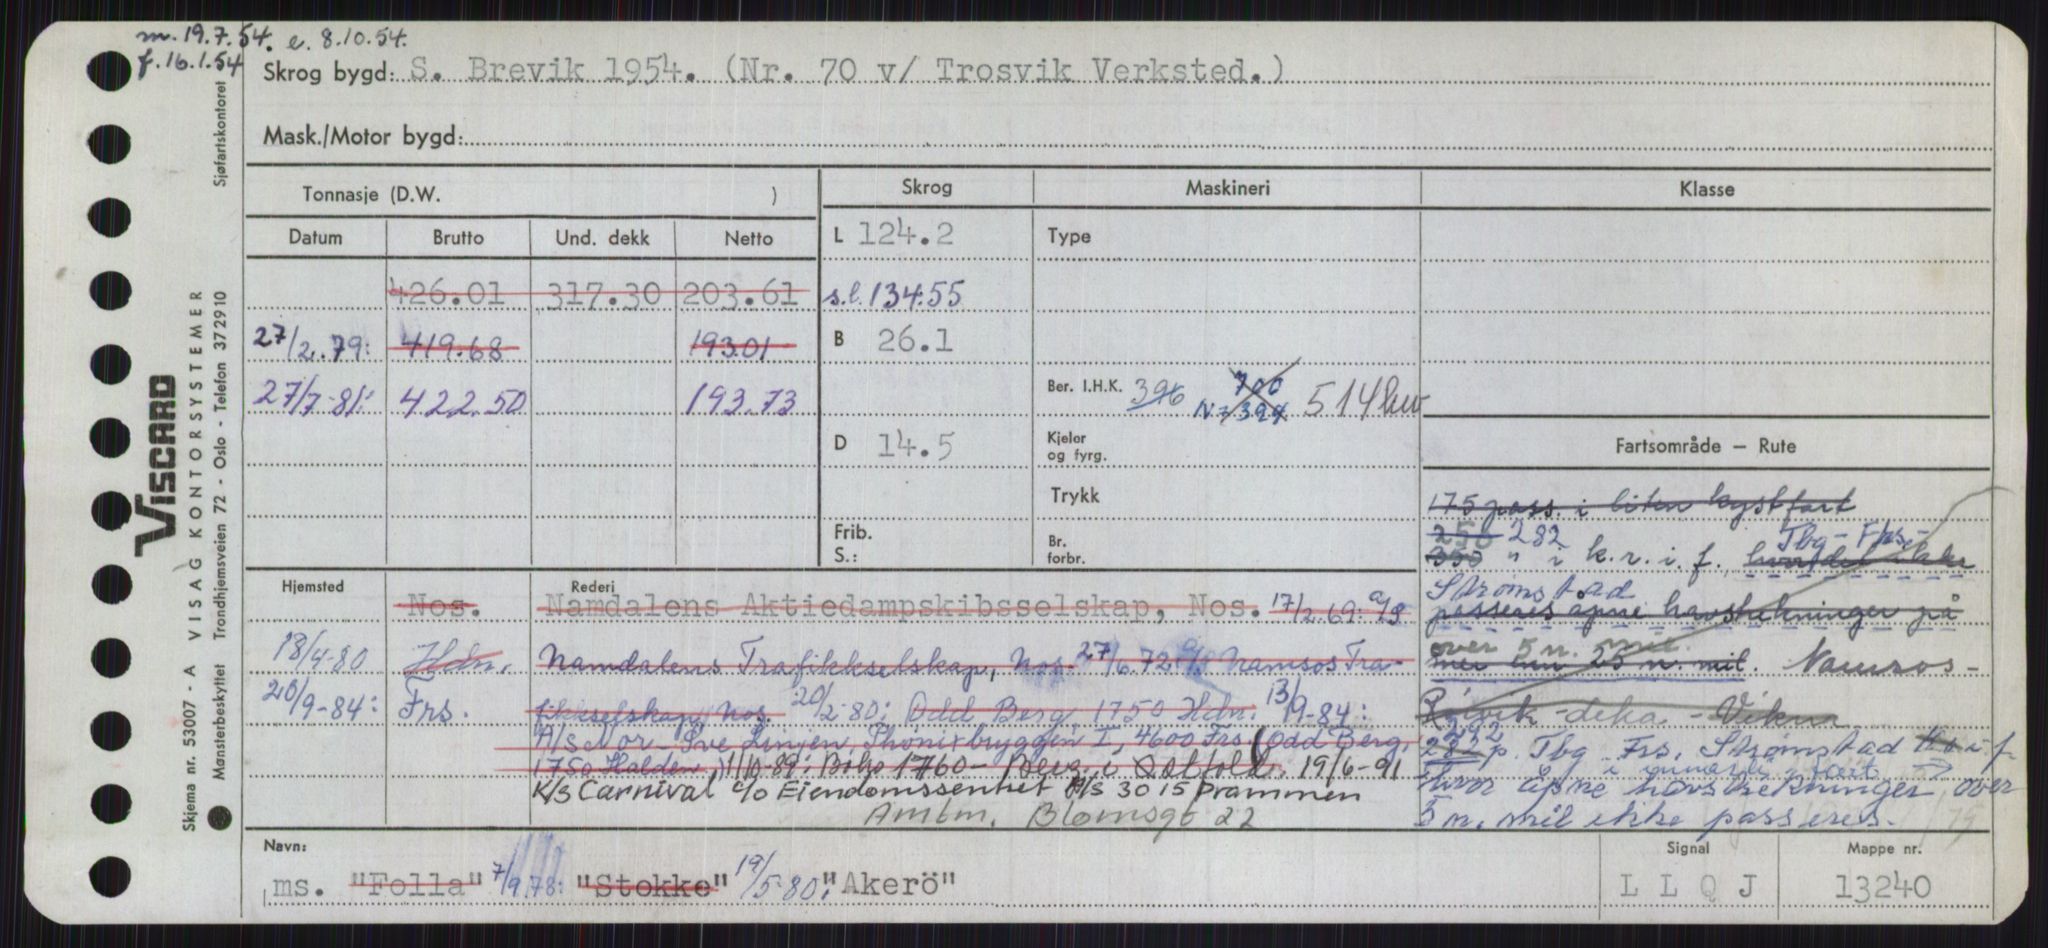 m. 19.7.54. e. 8.10.54.
f. 16.1.54
Skrog bygd: S. Brevik 1954. (Nr. 70 v/ Trosvik Verksted.)
Mask./Motor bygd:
Tonnasje (D.W. )
Datum Brutto Und. dekk Netto
426.01 317.30 203.61
27/2.79: 419.68 193.01
27/7-81: 422.50 193.73
Skrog
L 124.2
s.l. 134.55
B 26.1
D 14.5
Frib.
S.:
Maskineri
Type
Ber. I.H.K. 396 700 514 kw
N = 394
Kjeler
og fyrg.
Trykk
Br.
forbr.
Klasse
Fartsområde – Rute
175 pass. i liten kystfart
250 282 Tbg - Frs -
350 " i k.r.i.f.
Strømstad
passeres åpne havstrekninger på
over 5 n. mil.
mer enn 25 n. mil. Namsos -
Rørvik - - Vikna
292
p. Tbg Frs. Strømstad i f
i fart
hvor åpne havstrekninger over
5 n. mil ikke passeres.
Hjemsted Rederi
Nos. Namdalens Aktiedampskibsselskap, Nos. 17/2.69: A/S
18/4-80 Hdn. Namdalens Trafikkselskap, Nos. 27/6.72 A/S Namsos Tra-
20/9-84: Frs. fikkselskap, Nos. 20/2-80: Odd Berg, 1750 Hdn. 13/9-84:
A/S Nor-Sve Linjen, Phønixbryggen 1, 4600 Frs (Odd Berg,
1750 Halden), 1/10-89: 1760 - Berg i Østfold. 19/6-91
K/S Carnival c/o Eiendomssenhet A/S 3015 Drammen
Amtm. Blomsgt 22
Navn:
ms. "Folla" 7/9.78: "Stokke" 19/5-80: "Akerö"
Signal
L L Q J
Mappe nr.
13240
VISCARD
VISAG KONTORSYSTEMER
Skjema nr. 53007 - A
Mønsterbeskyttet Trondhjemsveien 72 - Oslo - Telefon 372910 Sjøfartskontoret